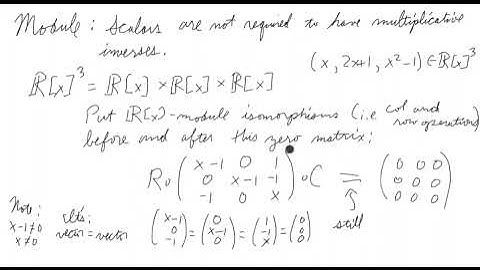 Module: Scalars are not required to have multiplicative
inverses.
(x, 2x+1, x²-1) ∈ ℝ[x]³
ℝ[x]³ = ℝ[x] × ℝ[x] × ℝ[x]
Put ℝ[x]-module isomorphisms (i.e col and
row operations)
before and after this zero matrix:
R∘ ( x-1 0 1 ) ∘C = ( 0 0 0 )
( 0 x-1 -1 ) ( 0 0 0 )
( -1 0 x ) ( 0 0 0 )
Note:
x-1≠0
x≠0
vector = vector
(x-1 0 -1) = (0 x-1 0) = (1 -1 x) = (0 0 0)
still